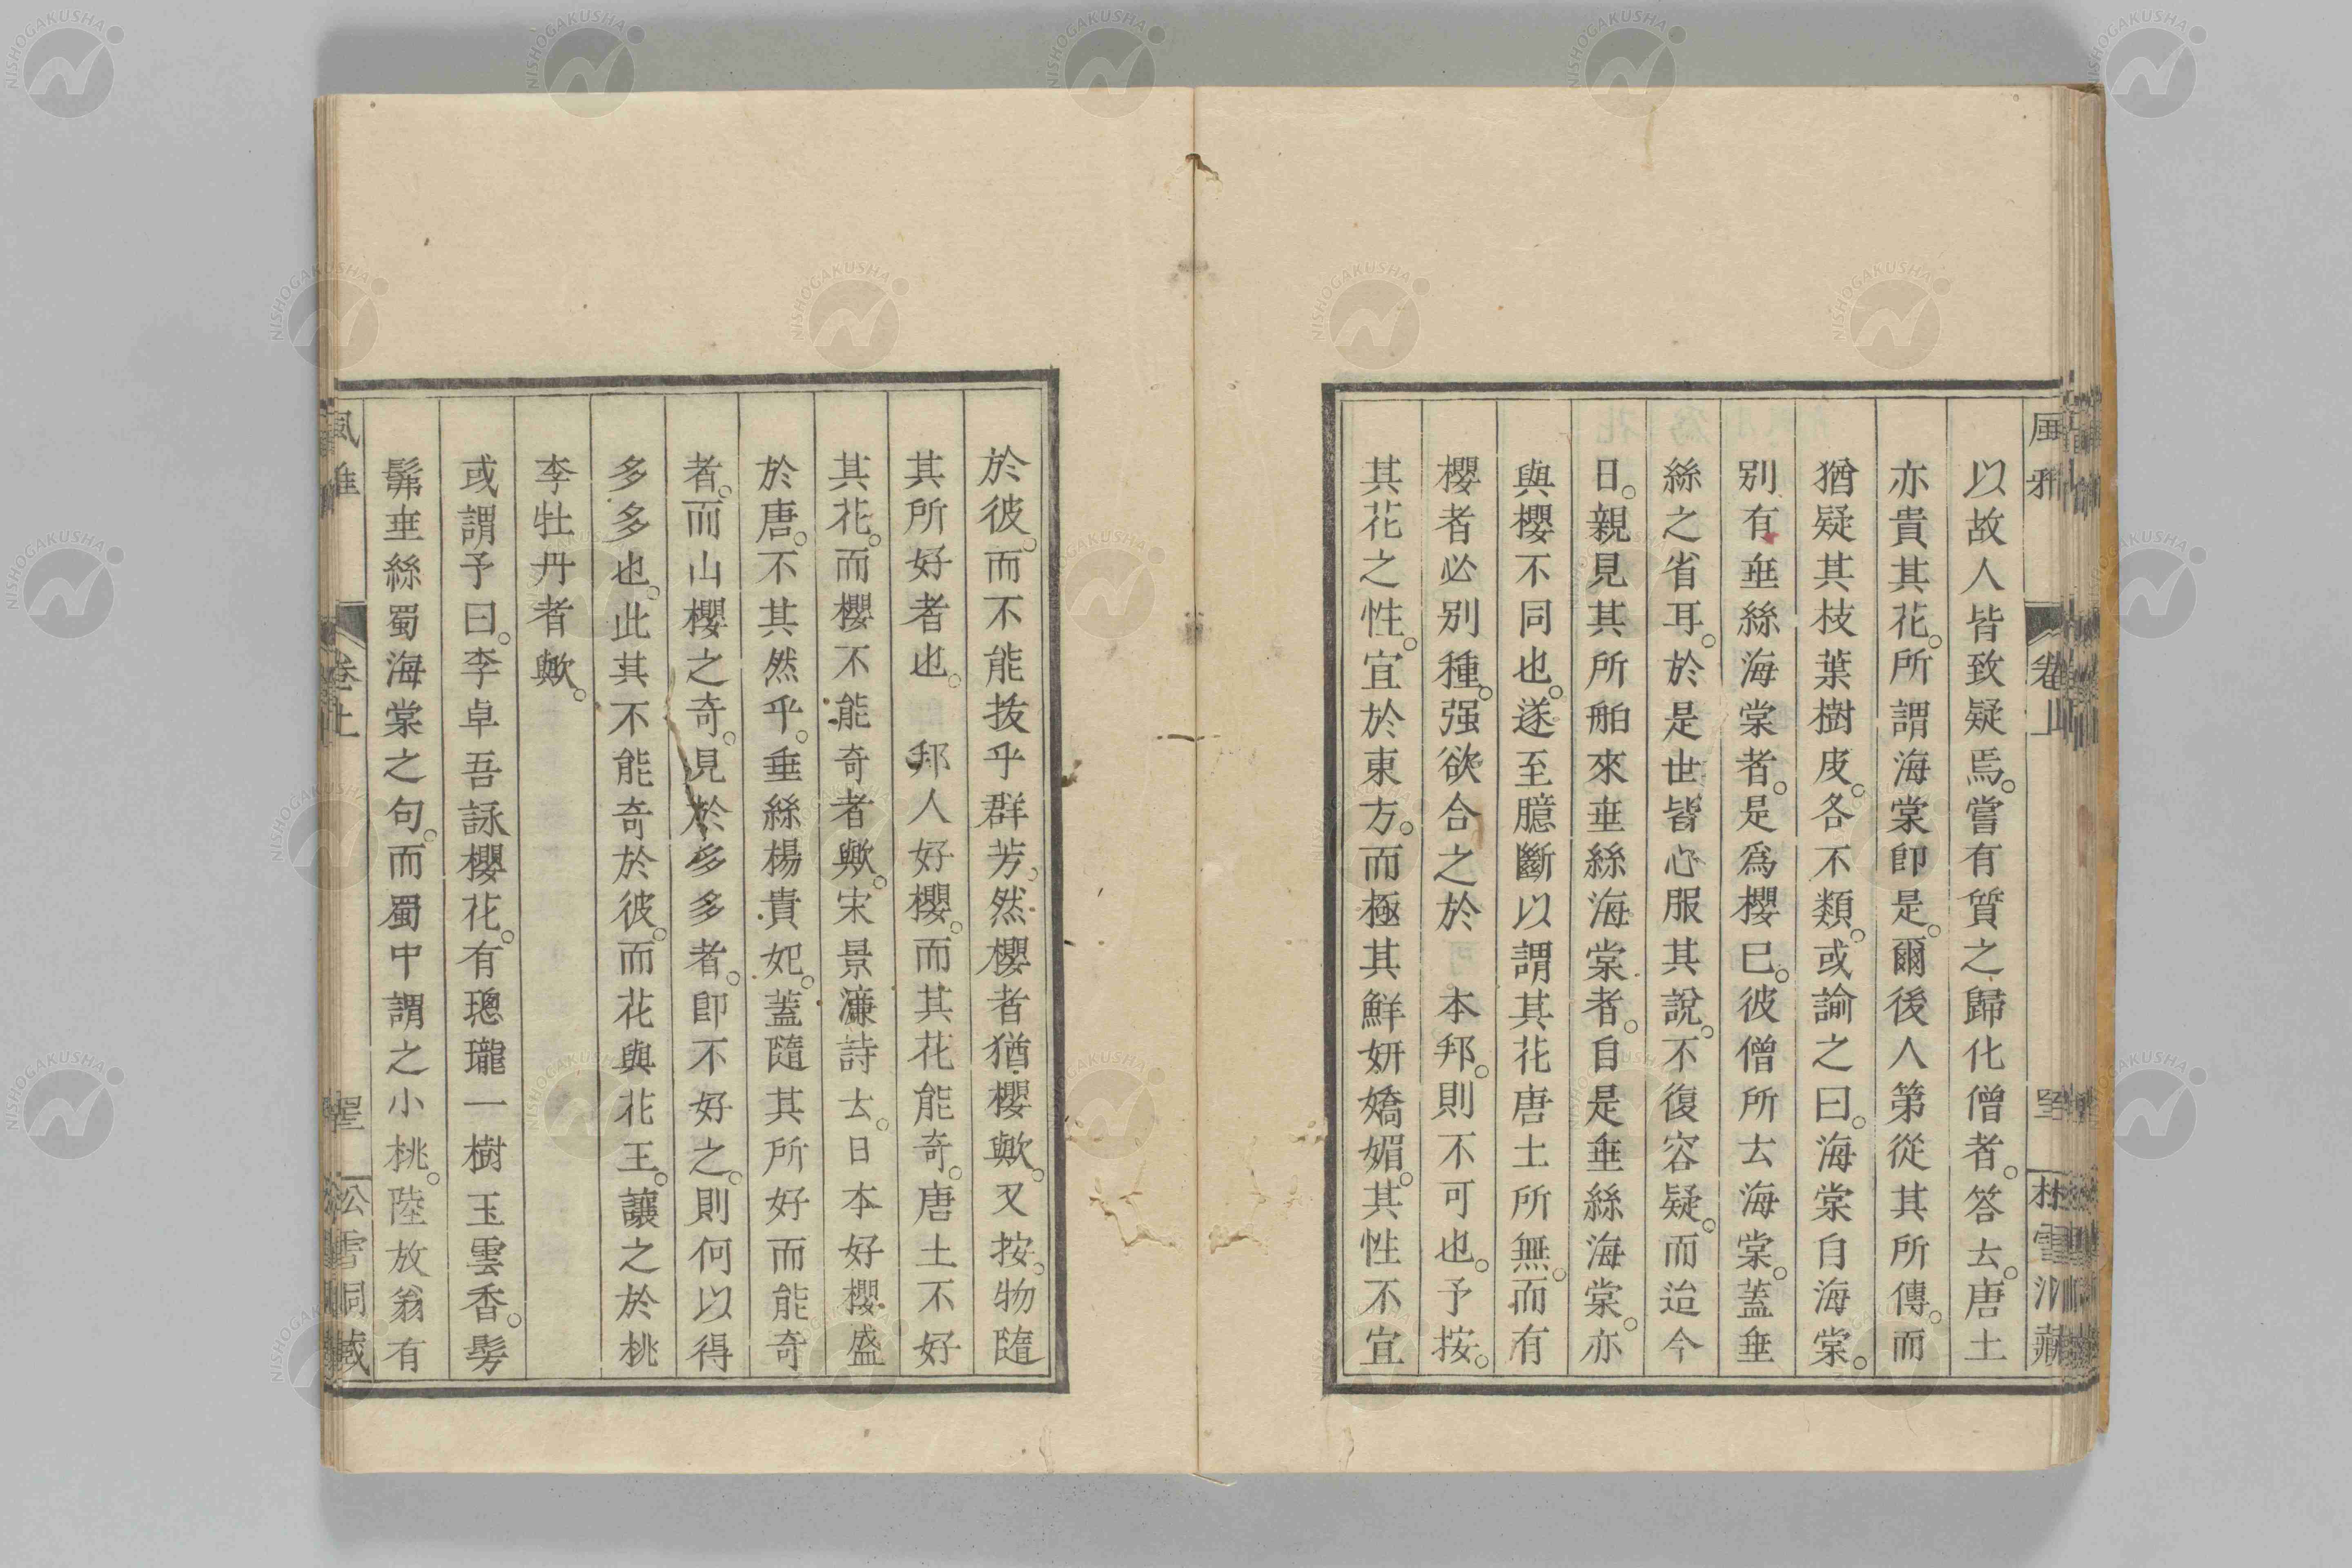 以故人皆致疑焉。嘗有質之歸化僧者。答云。唐土
亦貴其花。所謂海棠卽是。爾後人第從其所傳。而
猶疑其枝葉樹皮。各不類。或諭之曰。海棠自海棠。
別有垂絲海棠者。是爲櫻已。彼僧所云海棠。蓋垂
絲之省耳。於是世皆心服其說。不復容疑。而迨今
日。親見其所舶來垂絲海棠者。自是垂絲海棠。亦
與櫻不同也。遂至臆斷以謂其花唐土所無。而有
櫻者必別種。强欲合之於 本邦。則不可也。予按。
其花之性。宜於東方。而極其鮮姸嬌媚。其性不宜
於彼。而不能拔乎群芳。然櫻者猶櫻歟。又按。物隨
其所好者也。 邦人好櫻。而其花能奇。唐土不好
其花。而櫻不能奇者歟。宋景濂詩云。日本好櫻盛
於唐。不其然乎。垂絲楊貴妃。蓋隨其所好而能奇
者。而山櫻之奇。見於多多者。卽不好之。則何以得
多多也。此其不能奇於彼。而花與花王。讓之於桃
李牡丹者歟。
或謂予曰。李卓吾詠櫻花。有璁瓏一樹玉雲香。髣
髴垂絲蜀海棠之句。而蜀中謂之小桃。陸放翁有
風雅 卷上